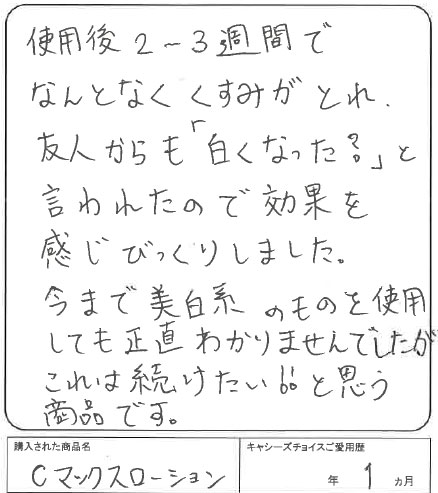 使用後2〜3週間で
なんとなくくすみがとれ、
友人からも「白くなった?」と
言われたので効果を
感じびっくりしました。
今まで美白系のものを使用
しても正直わかりませんでしたが
これは続けたい!!と思う
商品です。
購入された商品名
Cマックスローション
キャシーズチョイスご愛用歴
年 1 ヵ月